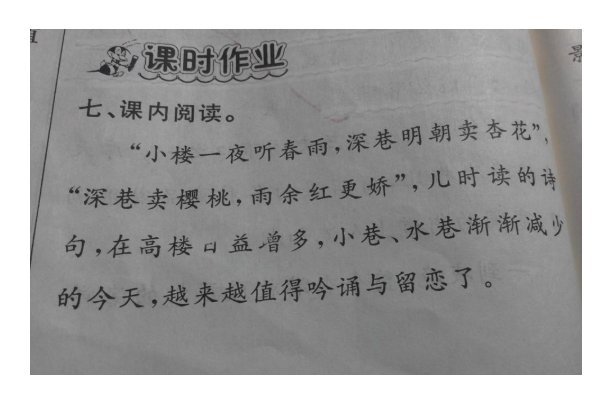 课时作业
七、课内阅读。
“小楼一夜听春雨，深巷明朝卖杏花”，
“深巷卖樱桃，雨余红更娇”，儿时读的诗
句，在高楼日益增多，小巷、水巷渐渐减少
的今天，越来越值得吟诵与留恋了。